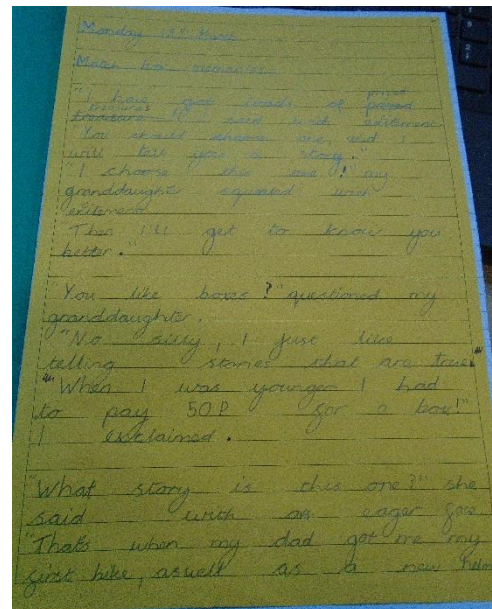 Monday 19th March
Match box memories
"I have got loads of prized
treasures" I said with exitement
"You should choose one, and I
will tell you a story."
"I choose this one!" my
granddaughter squealed with
exitement
"Then I'll get to know you
better."
"You like boxes?" questioned my
granddaughter.
"No silly, I just like
telling stories that are true"
"When I was younger I had
to pay 50P for a box!"
I exclaimed.
"What story is this one?" she
said with an eager face
"Thats when my dad got me my
first bike, aswell as a new helm